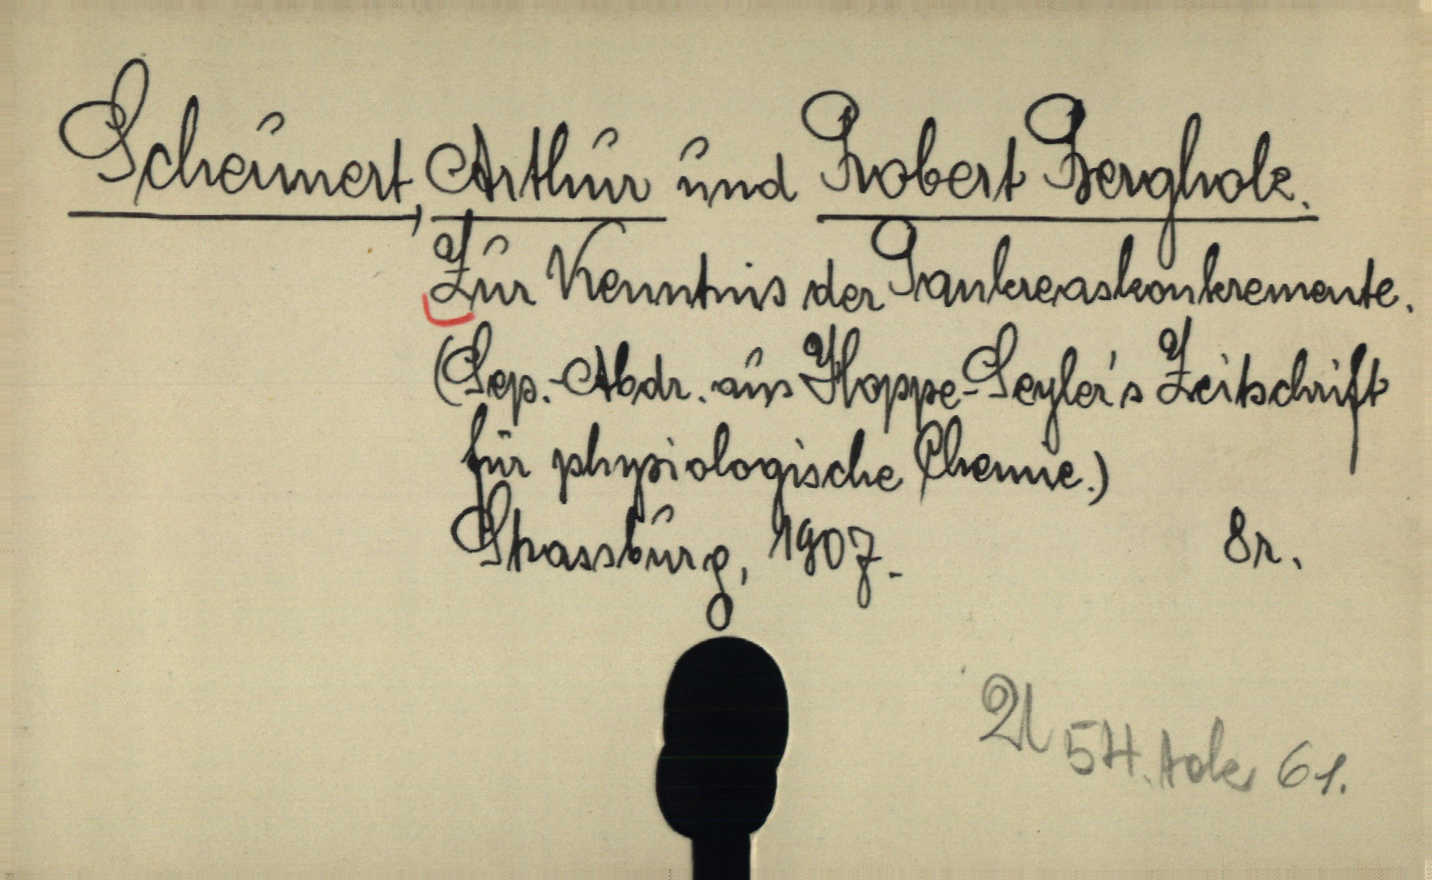 Scheunert, Arthur und Robert Bergholz.
Zur Kenntnis der Pankreaskonkremente.
(Sep.-Abdr. aus Hoppe-Seyler's Zeitschrift
für physiologische Chemie.)
Strassburg, 1907. 8r.
54. 61.